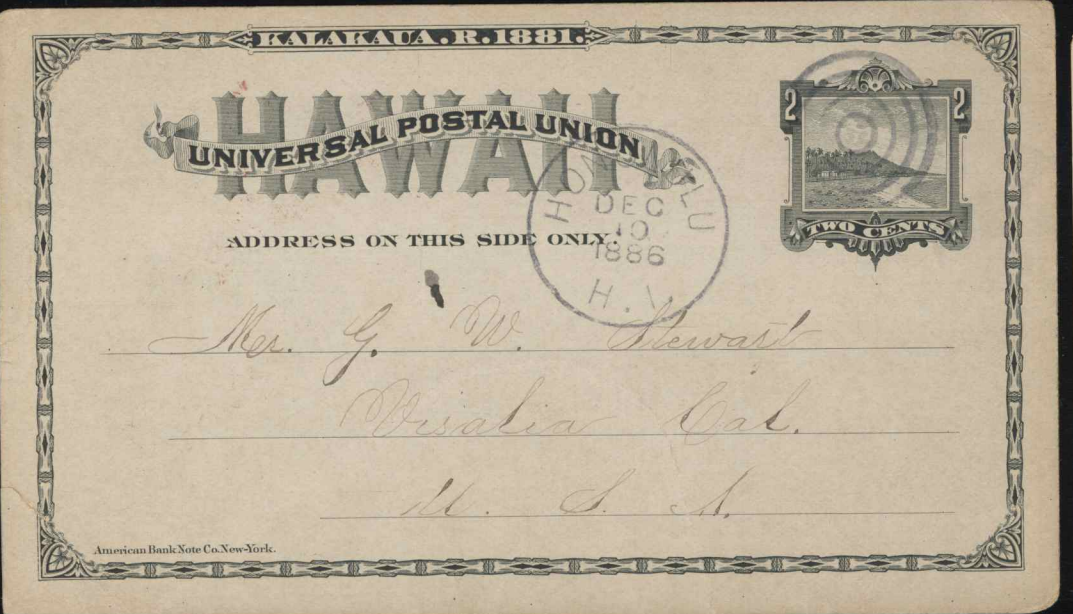 KALAKAUA.R.1881.
HAWAII
UNIVERSAL POSTAL UNION
2 2
TWO CENTS
ADDRESS ON THIS SIDE ONLY.
HONOLULU
DEC
10
1886
H.I.
Mr. G. W. Stewart
Visalia Cal.
U. S. A.
American Bank Note Co. New-York.